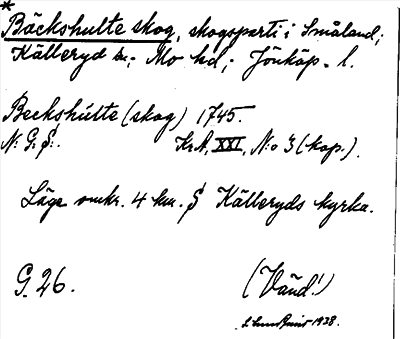 * Bäckshulte skog, skogsparti i Småland;
Källeryd sn.; Mo hd; Jönköp. l.
Beckshulte (skog) 1745.
N: G: S:. KrA, XXI, N:o 3 (kop.).
Läge omkr. 4 km. S Källeryds kyrka.
G. 26. (Vänd!)
1938.